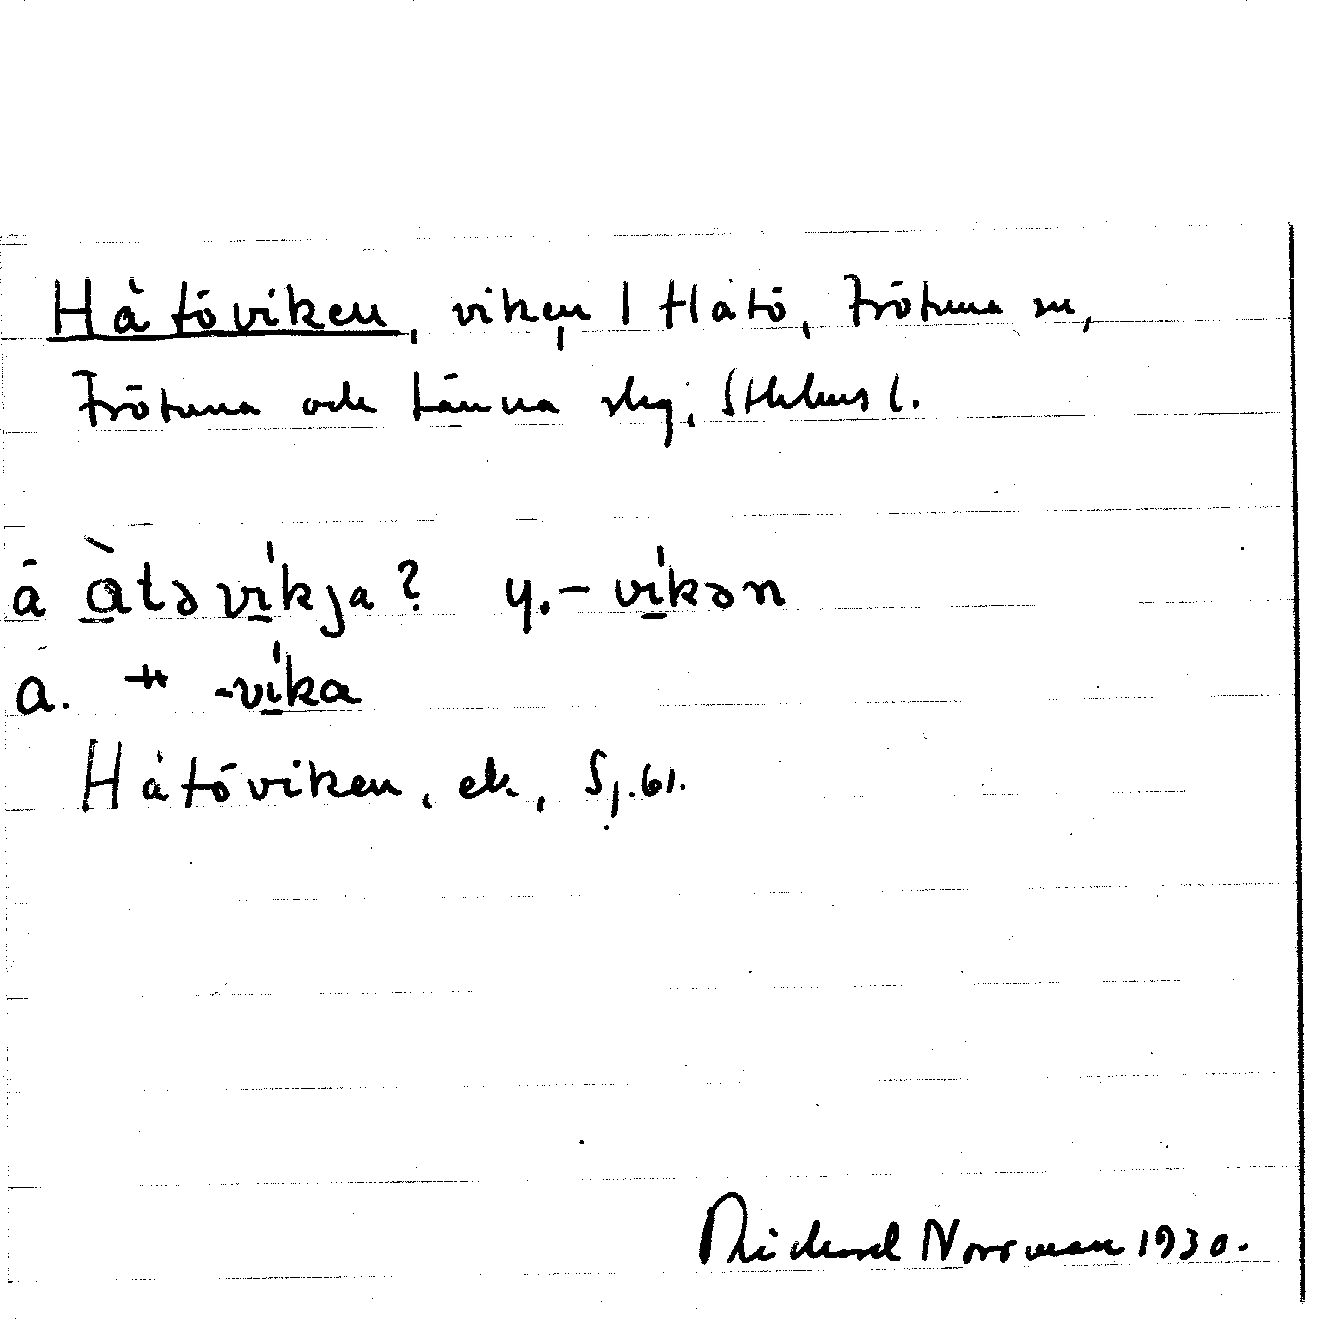 Håtöviken, viken i Håtö, Frötuna sn,
Frötuna och Länna skg, Sthlms l.
å åtəvikja? y. - vikən
a. -vika
Håtöviken, ek, Sj. 61.
Rickard Norrman 1930.